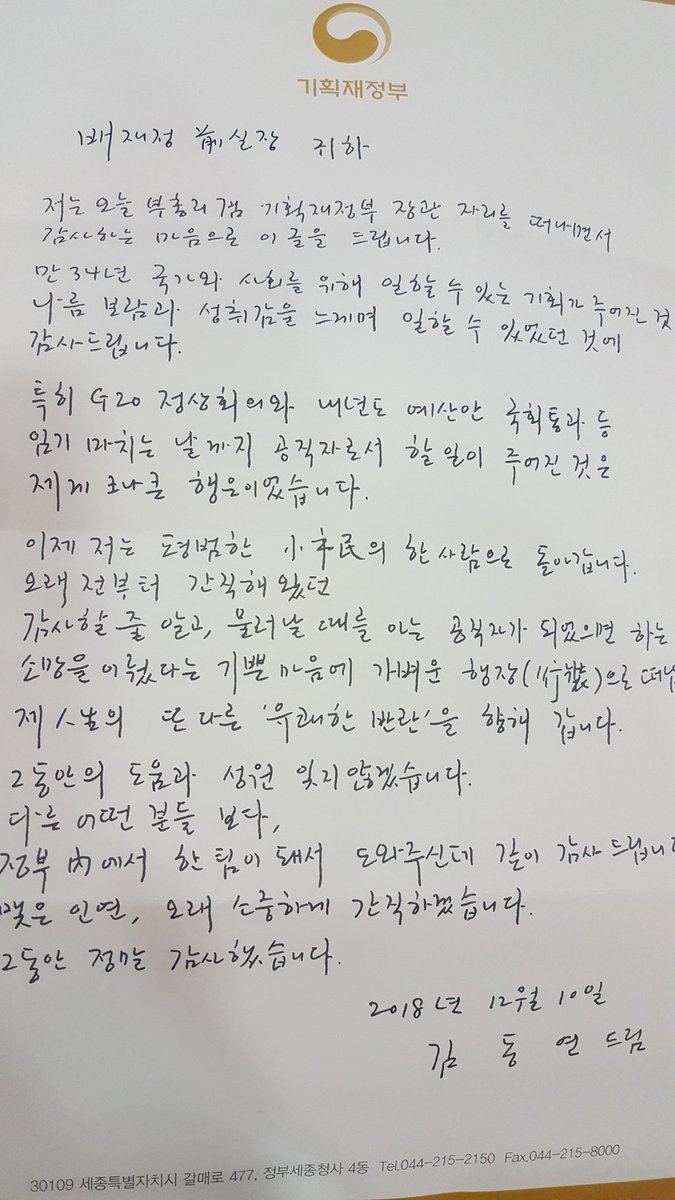 기획재정부
배재정 前실장 귀하
저는 오늘 부총리 겸 기획재정부 장관 자리를 떠나면서
감사하는 마음으로 이 글을 드립니다.
만 34년 국가와 사회를 위해 일할 수 있는 기회가 주어진 것
나름 보람과 성취감을 느끼며 일할 수 있었던 것에
감사드립니다.
특히 G20 정상회의와 내년도 예산안 국회통과 등
임기 마치는 날까지 공직자로서 할 일이 주어진 것은
제게 크나큰 행운이었습니다.
이제 저는 평범한 小市民의 한 사람으로 돌아갑니다.
오래 전부터 간직해 왔던
감사할 줄 알고, 물러날 때를 아는 공직자가 되었으면 하는
소망을 이뤘다는 기쁜 마음에 가벼운 행장(行裝)으로 떠납
제 人生의 또 다른 '유쾌한 반란'을 향해 갑니다.
그동안의 도움과 성원 잊지 않겠습니다.
다른 어떤 분들 보다,
정부 內에서 한 팀이 돼서 도와주신데 깊이 감사드립니다
맺은 인연, 오래 소중하게 간직하겠습니다.
그동안 정말 감사했습니다.
2018년 12월 10일
김동연 드림
30109 세종특별자치시 갈매로 477, 정부세종청사 4동 Tel.044-215-2150 Fax.044-215-8000